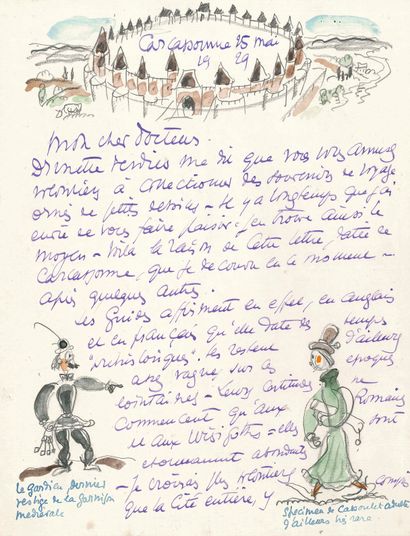 Carcassonne 25 mai
1929
Mon cher Docteur.
me dit que vous vous amusez
volontiers à collectionner des souvenirs de voyage
ornés de petits dessins – Il y a longtemps que j'ai
envie de vous faire plaisir: j'en trouve ainsi le
moyen – Voilà la raison de cette lettre, datée de
Carcassonne, que je découvre en ce moment –
après quelques autres.
Les Guides affirment en effet, en anglais
et en français qu'elle date des temps
"préhistoriques". Ils restent d'ailleurs
assez vague sur ces époques
lointaines – Leurs certitudes ne
commencent qu'aux Romains
et aux Wisigoths – elles sont
étonnamment abondantes
– Je croirais plus volontiers
que la Cité entière, y
le gardien, dernier
vestige de la garnison
médiévale
Spécimen de
d'ailleurs très rare.